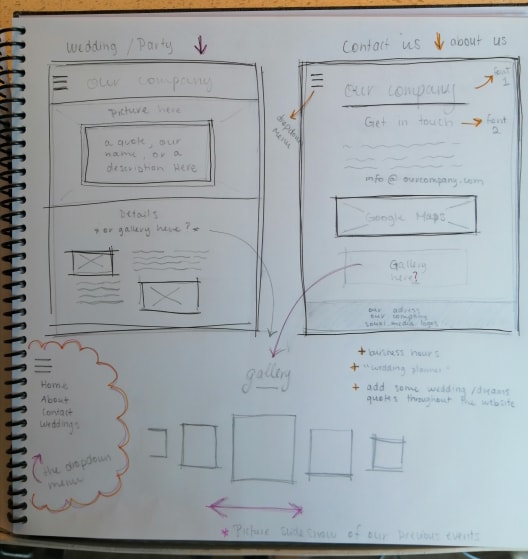 Wedding / Party
Our company
Picture here
a quote, our
name, or a
description here
Details
* or gallery here? *
Contact us
about us
font
1
Our company
dropdown
menu
Get in touch
font
2
info@ourcompany.com
Google Maps
Gallery
here?
our adress
our company
social media logos
gallery
+ business hours
+ "wedding planner"
+ add some wedding/dreams
quotes throughout the website
Home
About
Contact
Weddings
the dropdown
menu
* Picture slideshow of our previous events